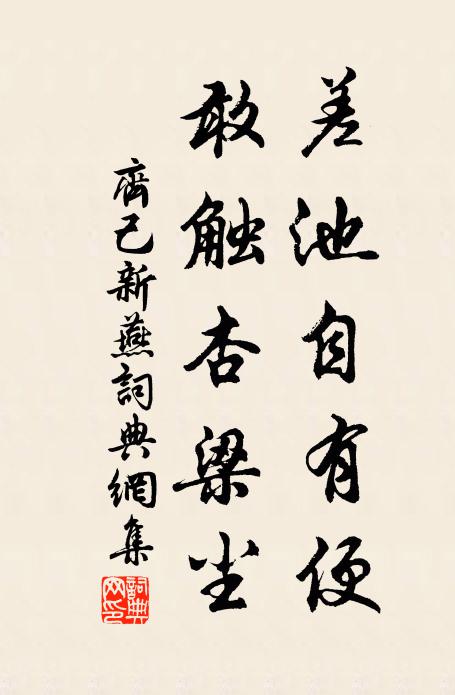 差池自有便
敢触杏梁尘
齊己新燕詞典網集
詞典网印